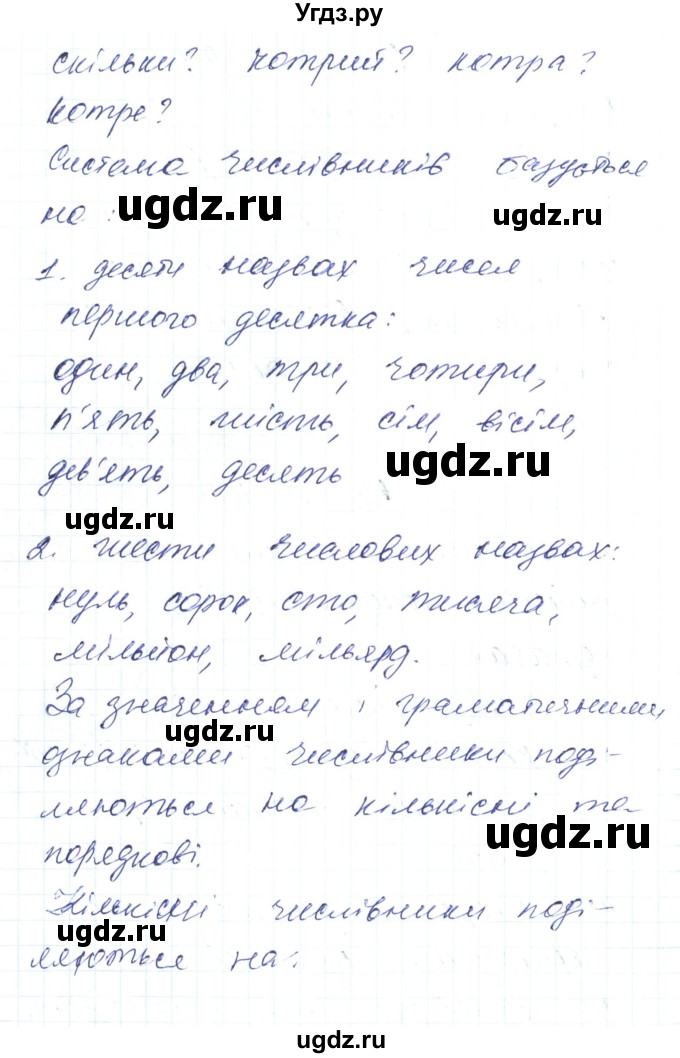 Угдз.ру
скільки? котрий? котра?
котре?
Система числівників базується
на :
ugdz.ru
ugdz.ru
1. десяти назвах чисел
першого десятка:
один, два, три, чотири,
п'ять, шість, сім, вісім,
дев'ять, десять
ugdz.ru
ugdz.ru
2. шести числових назвах:
нуль, сорок, сто, тисяча,
мільйон, мільярд.
За значенням і граматичними
ugdz.ru
ознаками числівники поді-
ляються на кількісні та
ugdz.ru
порядкові.
Кількісні числівники поді-
ugdz.ru
ляються на:
ugdz.ru